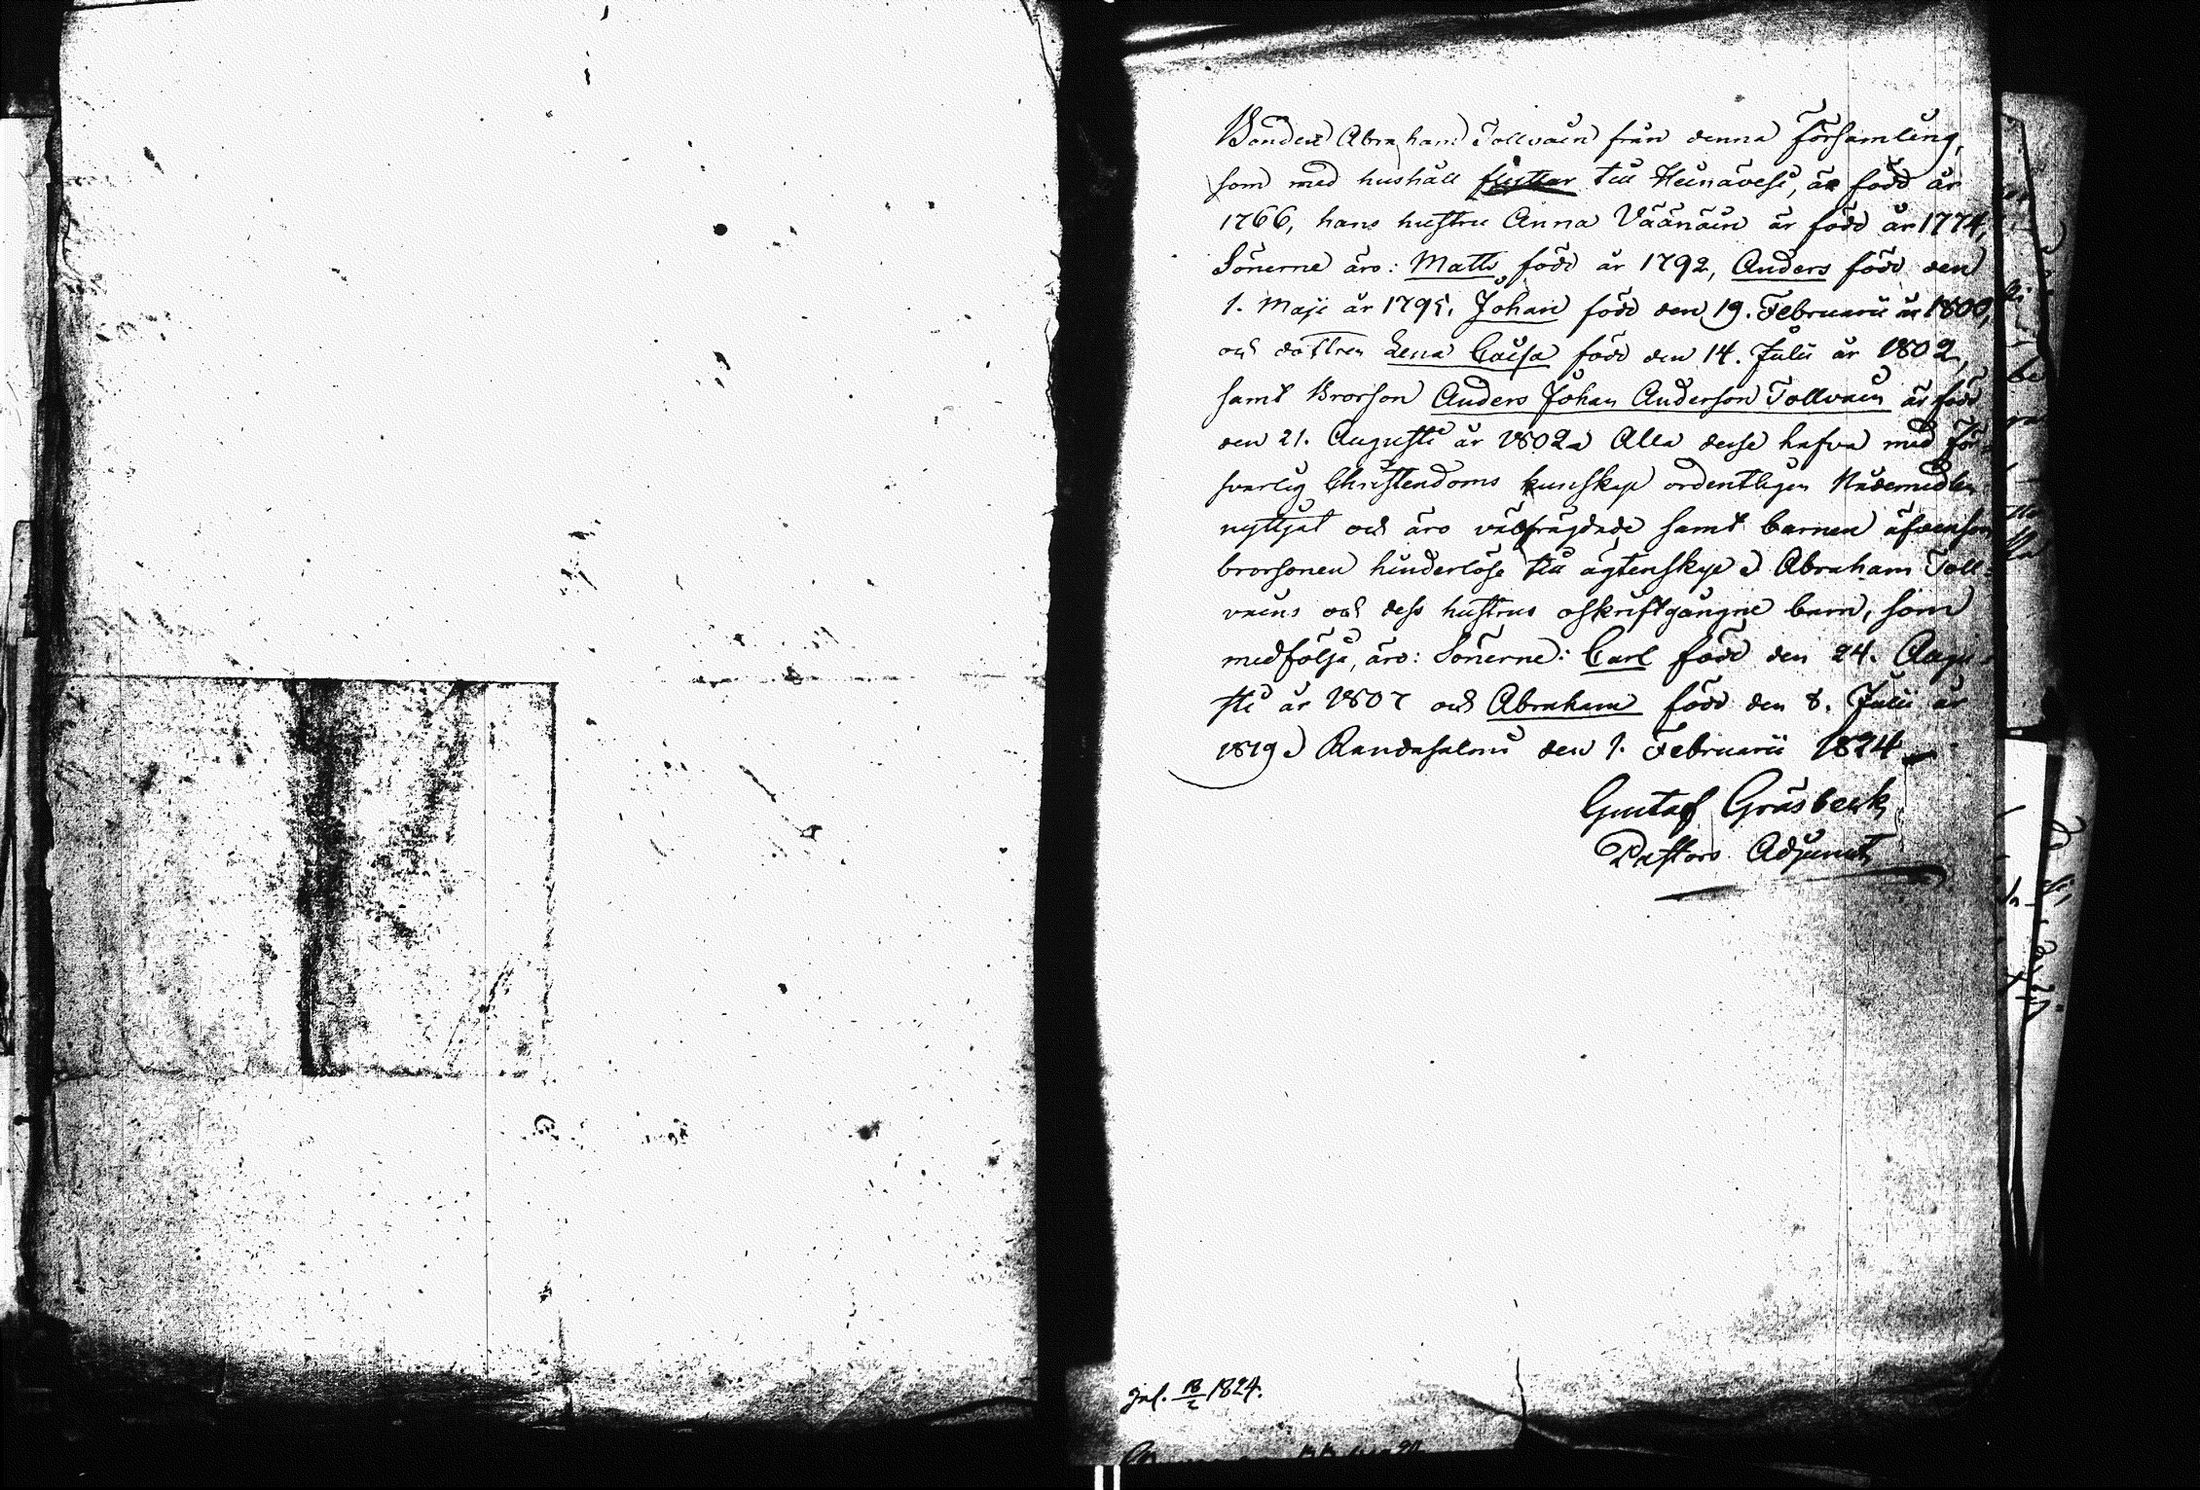 Bonden Abraham Tollvain från denna församling,
som med hushåll flyttar till Heinävesi, är född år
1766, hans hustru Anna Väänäin är född år 1774,
Sönerne äro: Matts född år 1792, Anders född den
1. Maji år 1795, Johan född den 19. Februarii år 1800,
och dottren Lena Caisa född den 14. Julii år 1802,
samt Brorson Anders Johan Anderson Tollvain är född
den 21. Augusti år 1802. Alla desse hafva med för-
svarlig Christendoms kunskap ordentligen Nådemedlen
nyttjat och äro välfrägdade samt barnen äfvensom
brorsonen hinderlöse till ägtenskap. Abraham Toll-
vains och dess hustrus oskriftgångne barn, som
medfölja, äro: Sönerne: Carl född den 24. Augu-
sti år 1807 och Abraham född den 8. Julii år
1819. Randasalmi den 1. Februarii 1824
Gustaf Gräsbeck
Pastors Adjunct
Inl. 18/2 1824.